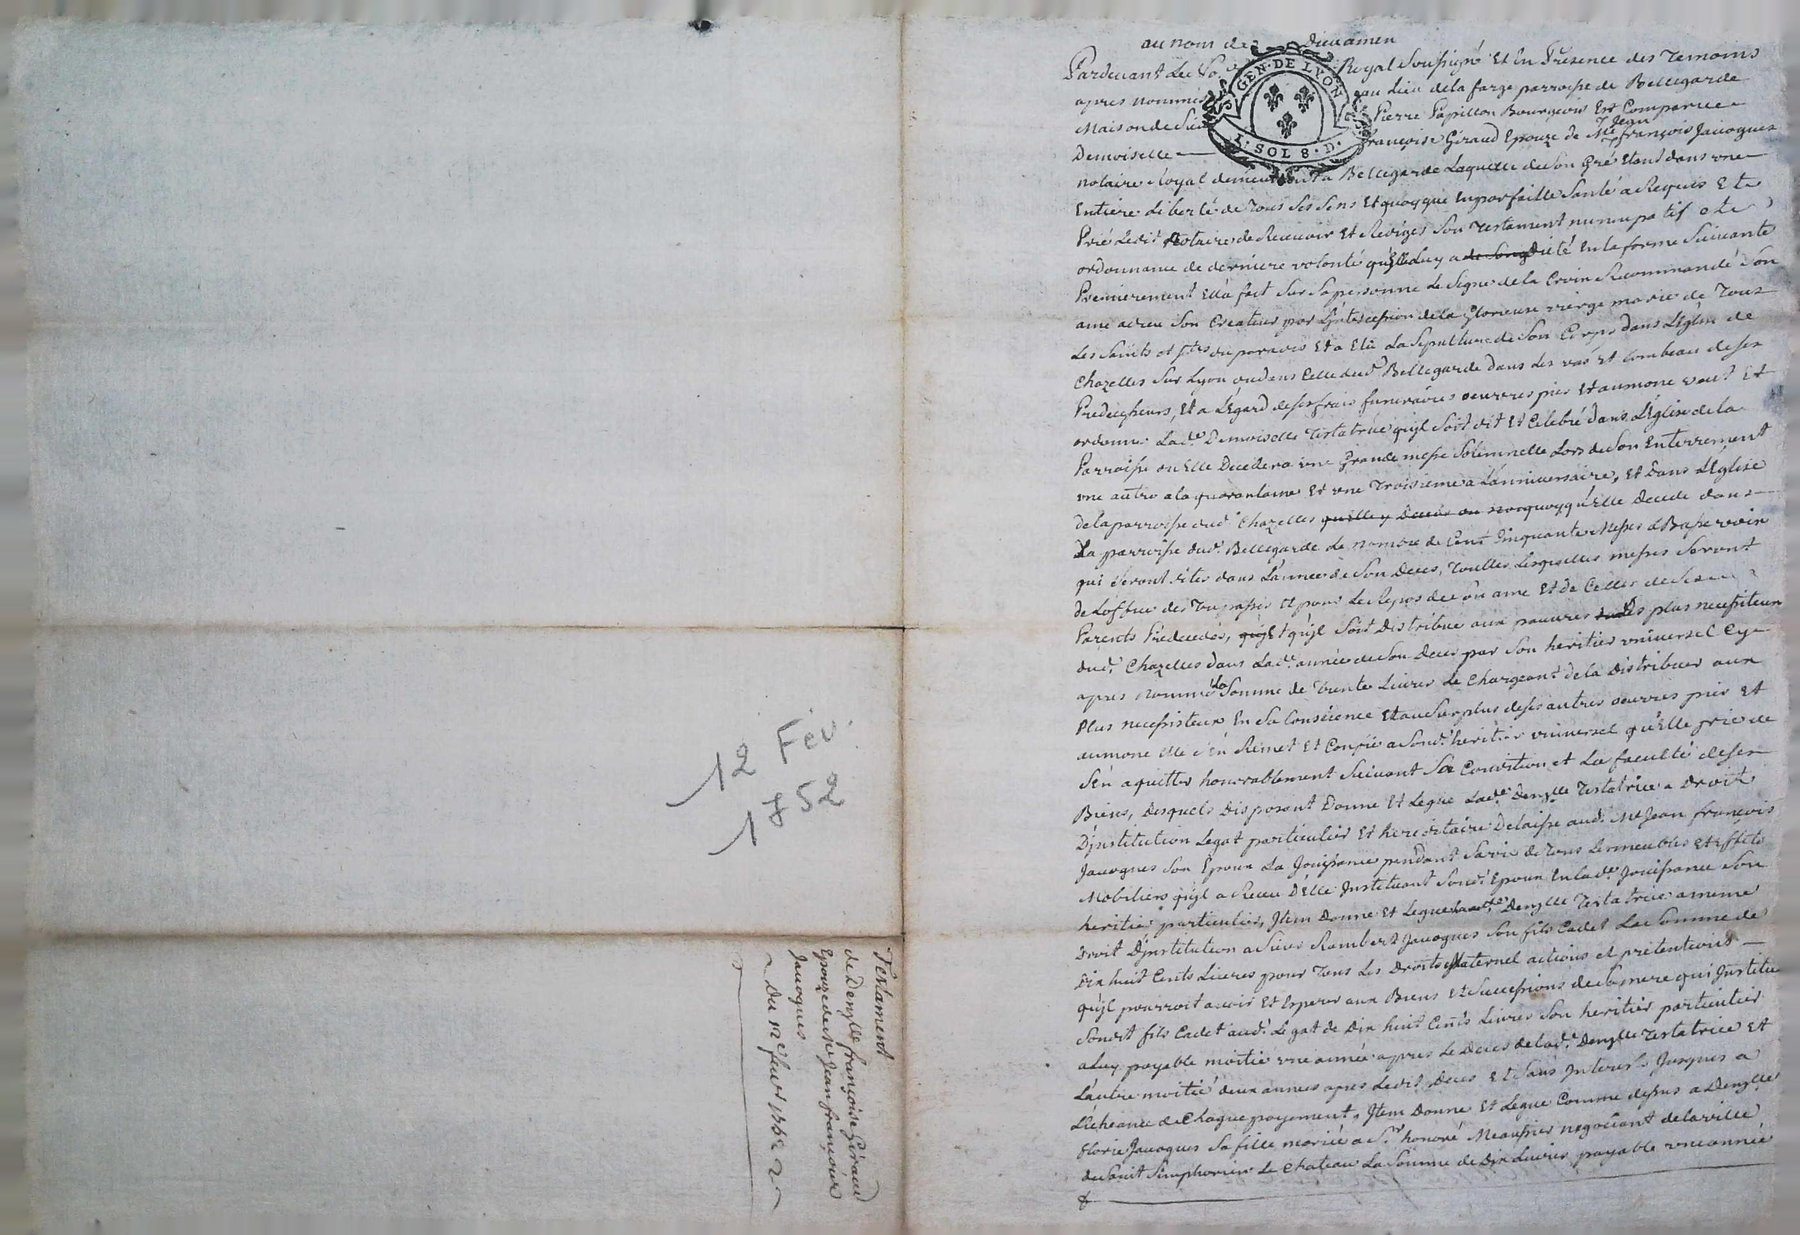 12 Fév.
1752
Testament
de Demlle françoise Géraud
Epouze de Me Jean françois
Jacogues
Du 12e fevr
au nom de Dieu amen
GEN · DE LYON
1 · SOL 8 · D ·
Pardevant Le No Royal Soussigné Et En Présence des Temoins
apres nommés au Lieu de la farge parroisse de Bellegarde
Maison de Sieur Pierre Papillon Bourgeois Est Comparue
Demoiselle françoise Géraud Epouze de Me Jean françois Jacogues
notaire Royal demeurant a Bellegarde Laquelle de Son Gré Etant dans une
Entiere Liberté de Tous Ses Sens Et quoyque En parfaitte Santé a Requis Et
Prié Ledit Notaire de Recevoir Et Rediger Son Testament nuncupatif Et
ordonnance de derniere volonté qu'Elle Luy a dicté En la forme Suivante
Premierement Ella fait Sur Sa personne Le Signe de la Croix Recommandé Son
ame a Dieu Son Createur par L'intercession de la Glorieuse vierge marie de Tous
Les Saints et Stes du paradis Et a Elû La Sepulture de Son Corps dans L'Eglise de
Chazelles Sur Lyon ou dans Celle dud. Bellegarde dans Les vas Et tombeau de Ses
Predecesseurs, Et a L'Egard de Ses frais funeraires oeuvres pies Et aumone veut Et
ordonne Lade Demoiselle Testatrice qu'jl Soit dit Et Celebré dans L'Eglise de la
Parroisse ou Elle Decedera une Grande messe Solemnelle Lors de Son Enterrement
une autre a la quarantaine Et une Troisieme a L'anniversaire, Et dans L'Eglise
de la parroisse dud. Chazelles quoyqu'Elle Decede dans
La parroisse dud. Bellegarde Le nombre de Cent Cinquante Messes a Basse voix
qui Seront dites dans L'année de Son Deces, Toutes Lesquelles messes Seront
de L'office des Trepassés Et pour Le Repos de Son ame Et de Celles de Ses
Parents Predecedés, qu'jl Soit Distribué aux pauvres plus necessiteux
dud. Chazelles dans Lade année de Son Deces par Son heritier universel Cy
apres nommé La Somme de Trente Livres Le Chargeant de la Distribuer aux
Plus necessiteux En Sa Conscience Et au Surplus de Ses autres oeuvres pies Et
aumone Elle S'En Remet Et Confie a Sond. heritier universel qu'Elle prie de
S'En aquitter honorablement Suivant Sa Condition et La faculté de Ses
Biens, Desquels Disposant Donne Et Legue Lade Demlle Testatrice a Droit
D'jnstitution Legat particulier Et hereditaire Delaisse aud. Me Jean françois
Jacogues Son Epoux La Jouissance pendant Sa vie de Tous Les meubles Et effets
Mobiliers qu'jl a Receu D'Elle Jnstituant Sond. Epoux En lade Jouissance Son
heritier particulier, Jtem Donne Et Legue Lade Demlle Testatrice a meme
Droit D'jnstitution a Sieur Rambert Jacogues Son fils Cadet La Somme de
Dix huit Cents Livres pour Tous Les Droits Maternel actions et pretentions
qu'jl pourroit avoir Et Esperer aux Biens Et Successions de Sa mere qui Jnstitue
Sondit fils Cadet aud. Legat de Dix huit Cents Livres Son heritier particulier
a Luy payable moitié une année apres Le Deces de lade Demlle Testatrice Et
L'autre moitié deux années apres Ledit Deces Et Sans Jnterests Jusques a
L'écheance de Chaque payement, Jtem Donne Et Legue Comme dessus a Demlle
Jacogues Sa fille mariée a Sr honoré negociant de la ville
de Saint Simphorien Le Chateau La Somme de Dix Livres payable une année